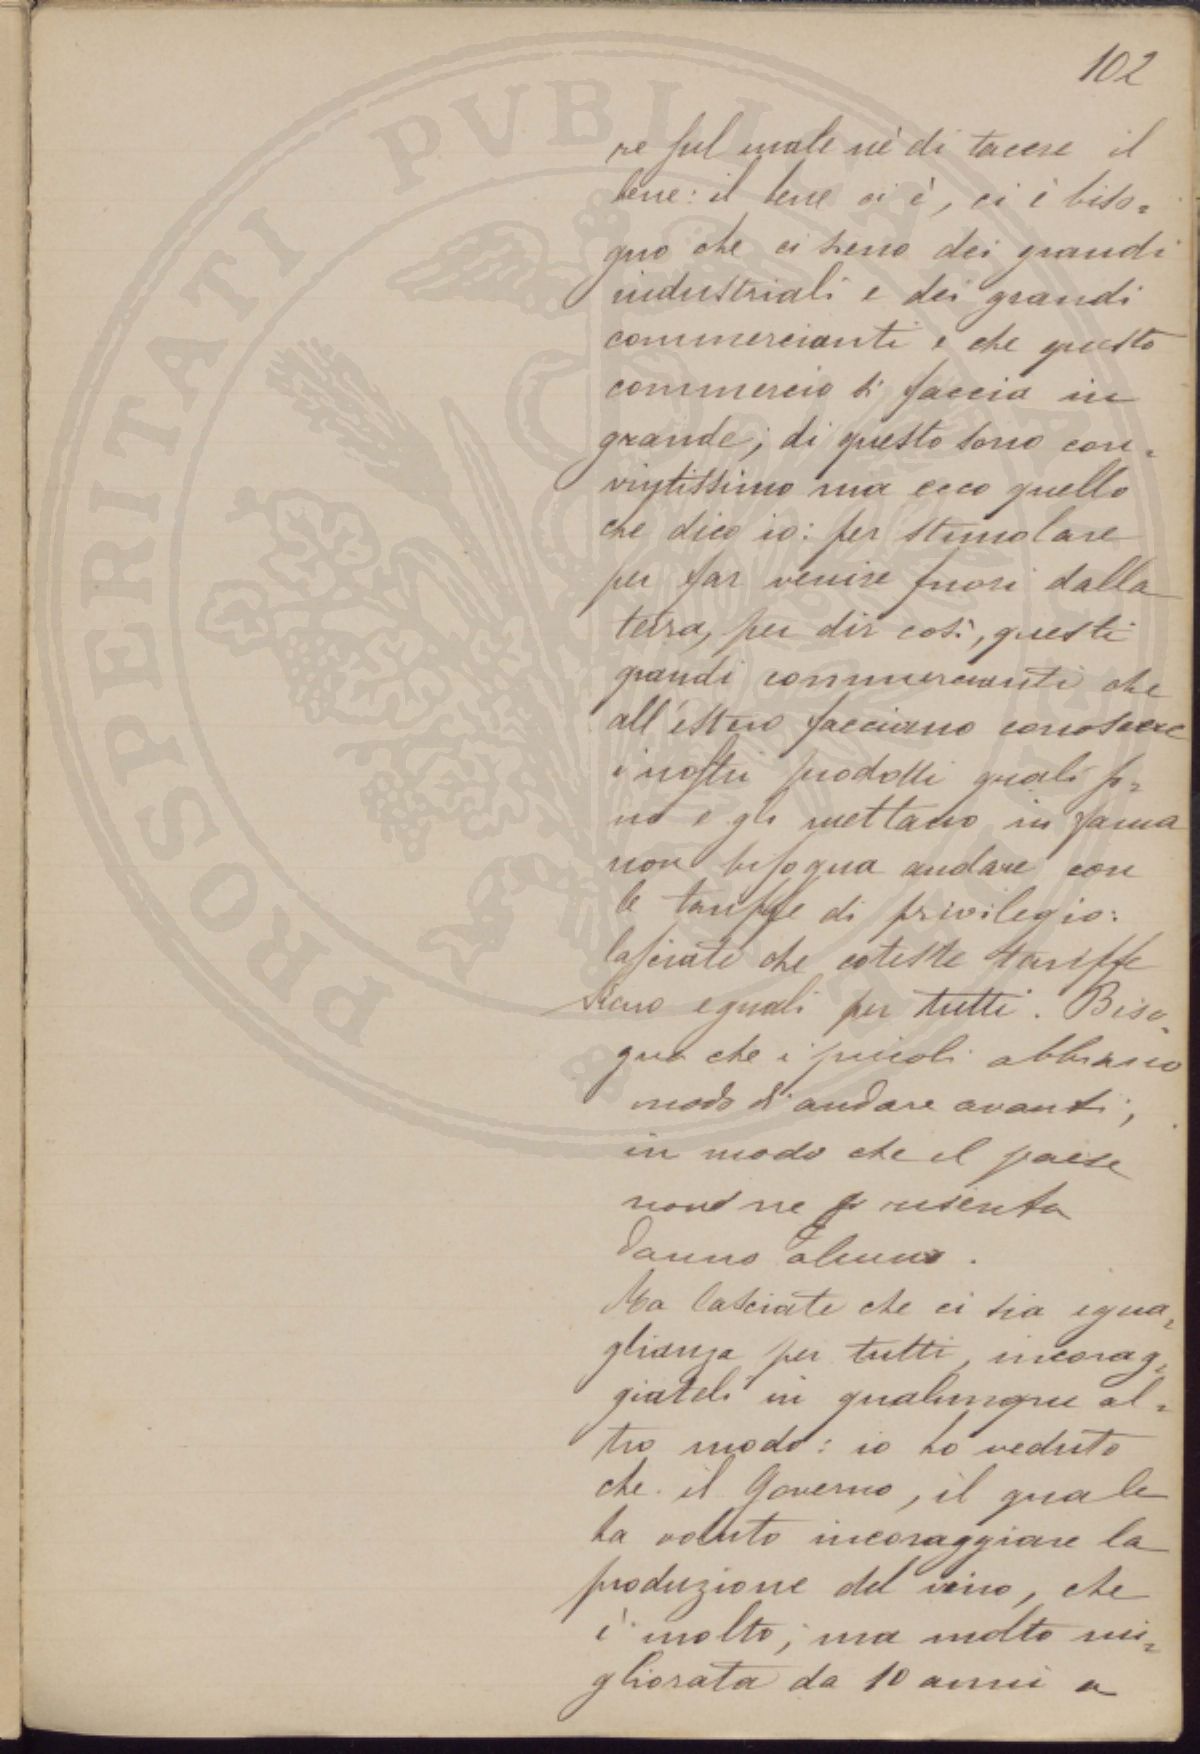 102
re sul male nè di tacere il
bene: il bene ci è, ci è biso=
gno che ci sieno dei grandi
industriali e dei grandi
commercianti e che questo
commercio si faccia in
grande; di questo sono con=
vintissimo ma ecco quello
che dico io: per stimolare
per far venire fuori dalla
terra, per dir così, questi
grandi commercianti che
all'estero facciano conoscere
i nostri prodotti quali so=
no e gli mettano in fama
non bisogna andare con
le tariffe di privilegio:
lasciate che coteste tariffe
sieno eguali per tutti. Biso=
gna che i piccoli abbiano
modo di andare avanti;
in modo che il paese
non ne risenta
danno alcuno.
Ma lasciate che ci sia egua=
glianza per tutti, incorag=
giateli in qualunque al=
tro modo: io ho veduto
che il Governo, il quale
ha voluto incoraggiare la
produzione del vino, che
è molto, ma molto mi=
gliorata da 10 anni a
PROSPERITATI PVBLICAE